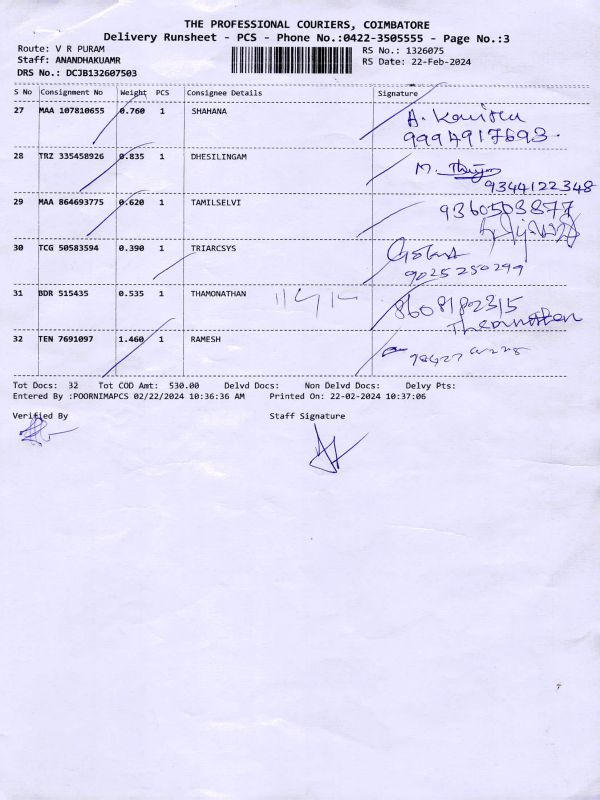 THE PROFESSIONAL COURIERS, COIMBATORE
Delivery Runsheet - PCS - Phone No.:0422-3505555 - Page No.:3
Route: V R PURAM RS No.: 1326075
Staff: ANANDHAKUAMR RS Date: 22-Feb-2024
DRS No.: DCJB132607503
S No Consignment No Weight PCS Consignee Details Signature
27 MAA 107810655 0.760 1 SHAHANA
9994917693
28 TRZ 335458926 0.835 1 DHESILINGAM M.
9344122348
29 MAA 864693775 0.620 1 TAMILSELVI 9360503877
30 TCG 50583594 0.390 1 TRIARCSYS
9025250299
31 BDR 515435 0.535 1 THAMONATHAN 8608182315
32 TEN 7691097 1.460 1 RAMESH
Tot Docs: 32 Tot COD Amt: 530.00 Delvd Docs: Non Delvd Docs: Delvy Pts:
Entered By :POORNIMAPCS 02/22/2024 10:36:36 AM Printed On: 22-02-2024 10:37:06
Verified By Staff Signature